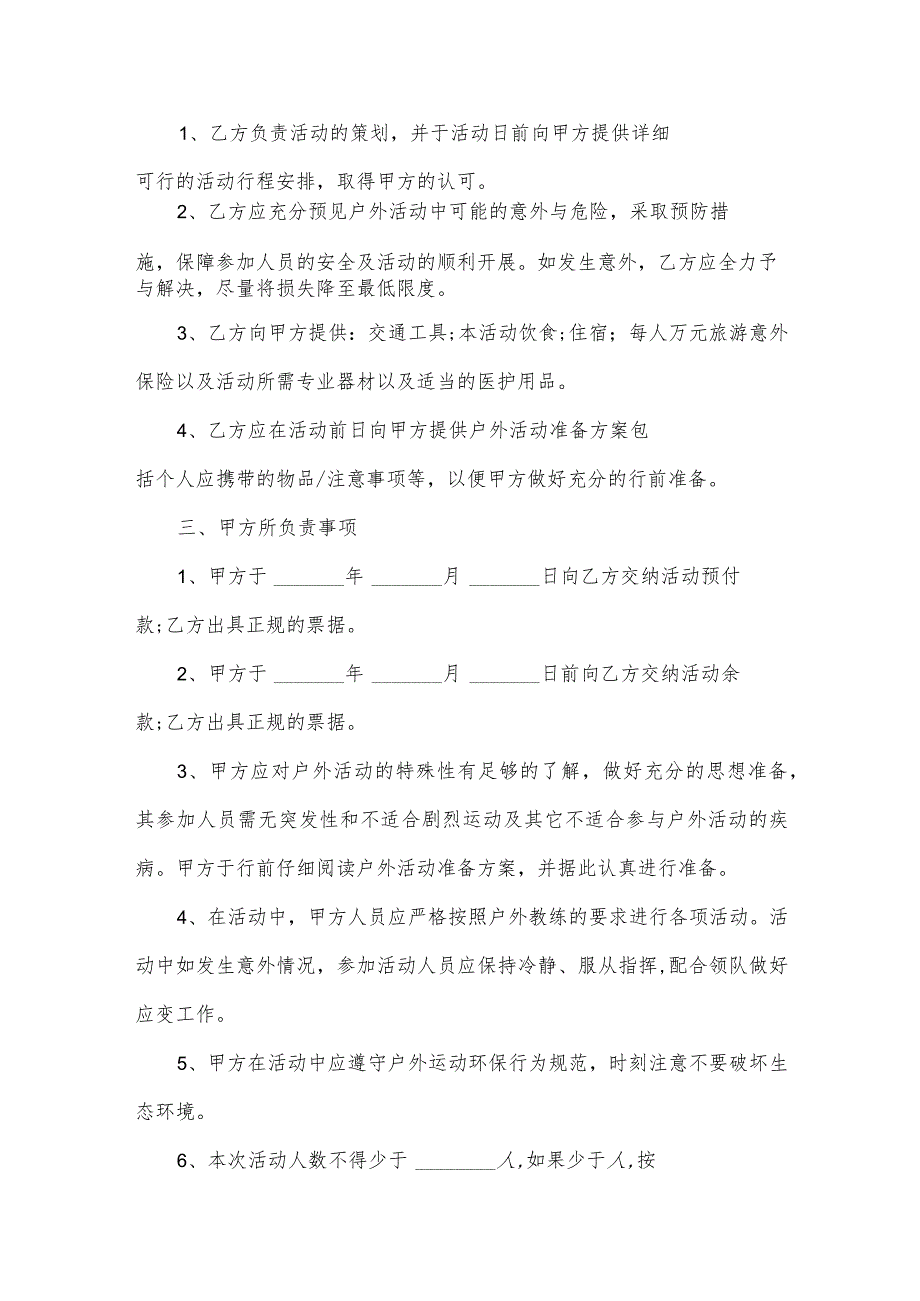 1、乙方负责活动的策划，并于活动日前向甲方提供详细
可行的活动行程安排，取得甲方的认可。
2、乙方应充分预见户外活动中可能的意外与危险，采取预防措
施，保障参加人员的安全及活动的顺利开展。如发生意外，乙方应全力予
与解决，尽量将损失降至最低限度。
3、乙方向甲方提供：交通工具;本活动饮食;住宿；每人万元旅游意外
保险以及活动所需专业器材以及适当的医护用品。
4、乙方应在活动前日向甲方提供户外活动准备方案包
括个人应携带的物品/注意事项等，以便甲方做好充分的行前准备。
三、甲方所负责事项
1、甲方于 _______年 _______月 _______日向乙方交纳活动预付
款;乙方出具正规的票据。
2、甲方于 _______年 _______月 _______日前向乙方交纳活动余
款;乙方出具正规的票据。
3、甲方应对户外活动的特殊性有足够的了解，做好充分的思想准备，
其参加人员需无突发性和不适合剧烈运动及其它不适合参与户外活动的疾
病。甲方于行前仔细阅读户外活动准备方案，并据此认真进行准备。
4、在活动中，甲方人员应严格按照户外教练的要求进行各项活动。活
动中如发生意外情况，参加活动人员应保持冷静、服从指挥,配合领队做好
应变工作。
5、甲方在活动中应遵守户外运动环保行为规范，时刻注意不要破坏生
态环境。
6、本次活动人数不得少于 ________人,如果少于人,按